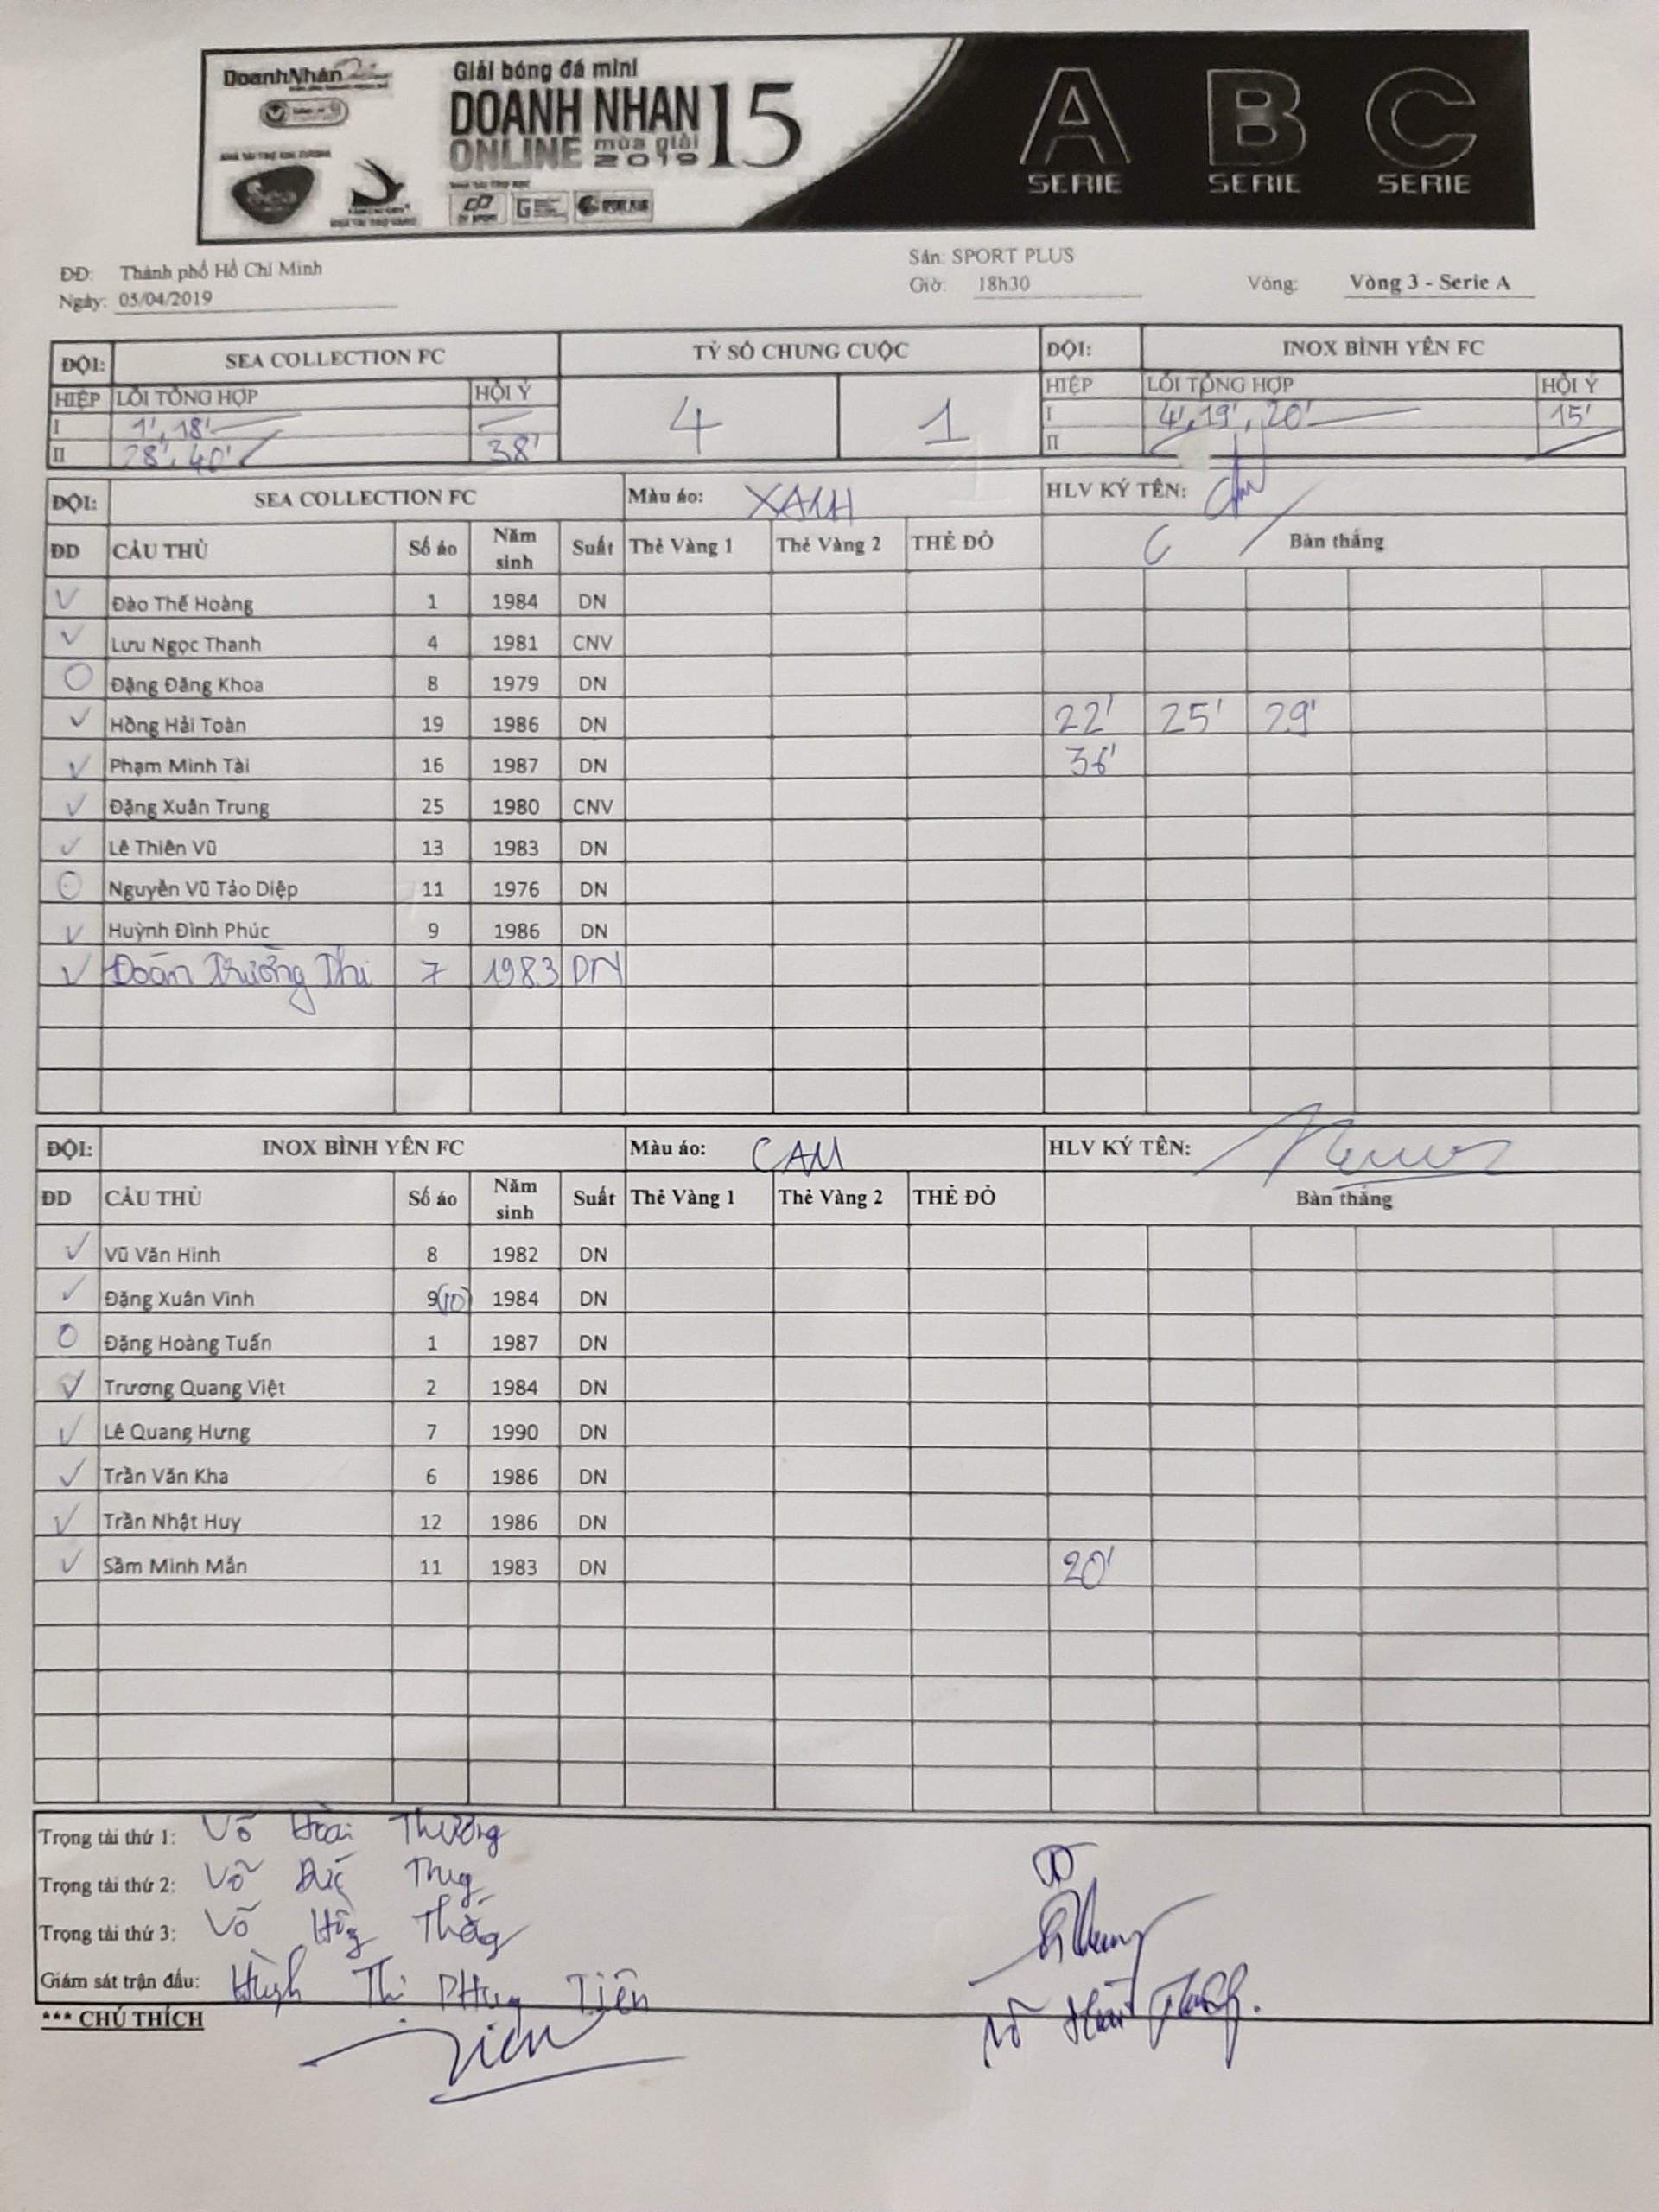 DoanhNhân
Giải bóng đá mini
DOANH NHAN 15
ONLINE mùa giải 2019
A SERIE B SERIE C SERIE
ĐĐ: Thành phố Hồ Chí Minh Sân: SPORT PLUS
Ngày: 05/04/2019 Giờ: 18h30 Vòng: Vòng 3 - Serie A
ĐỘI: SEA COLLECTION FC TỶ SỐ CHUNG CUỘC ĐỘI: INOX BÌNH YÊN FC
HIỆP LỖI TỔNG HỢP HỘI Ý 4 1 HIỆP LỖI TỔNG HỢP HỘI Ý
I 1', 18' I 4', 19', 20' 15'
II 28', 40' 38' II
ĐỘI: SEA COLLECTION FC Màu áo: XANH HLV KÝ TÊN:
ĐD CẦU THỦ Số áo Năm sinh Suất Thẻ Vàng 1 Thẻ Vàng 2 THẺ ĐỎ C Bàn thắng
Đào Thế Hoàng 1 1984 DN
Lưu Ngọc Thanh 4 1981 CNV
Đặng Đăng Khoa 8 1979 DN
Hồng Hải Toàn 19 1986 DN 22' 25' 29'
Phạm Minh Tài 16 1987 DN 36'
Đặng Xuân Trung 25 1980 CNV
Lê Thiên Vũ 13 1983 DN
Nguyễn Vũ Tảo Diệp 11 1976 DN
Huỳnh Đình Phúc 9 1986 DN
Đoàn Trường Thi 7 1983 DN
ĐỘI: INOX BÌNH YÊN FC Màu áo: CAM HLV KÝ TÊN:
ĐD CẦU THỦ Số áo Năm sinh Suất Thẻ Vàng 1 Thẻ Vàng 2 THẺ ĐỎ Bàn thắng
Vũ Văn Hinh 8 1982 DN
Đặng Xuân Vinh 9(10) 1984 DN
Đặng Hoàng Tuấn 1 1987 DN
Trương Quang Việt 2 1984 DN
Lê Quang Hưng 7 1990 DN
Trần Văn Kha 6 1986 DN
Trần Nhật Huy 12 1986 DN
Sầm Minh Mẫn 11 1983 DN 20'
Trọng tài thứ 1: Võ Hoài Thương
Trọng tài thứ 2: Võ Đức
Trọng tài thứ 3: Võ Thắng
Giám sát trận đấu: Huỳnh Thị Tiên
*** CHÚ THÍCH